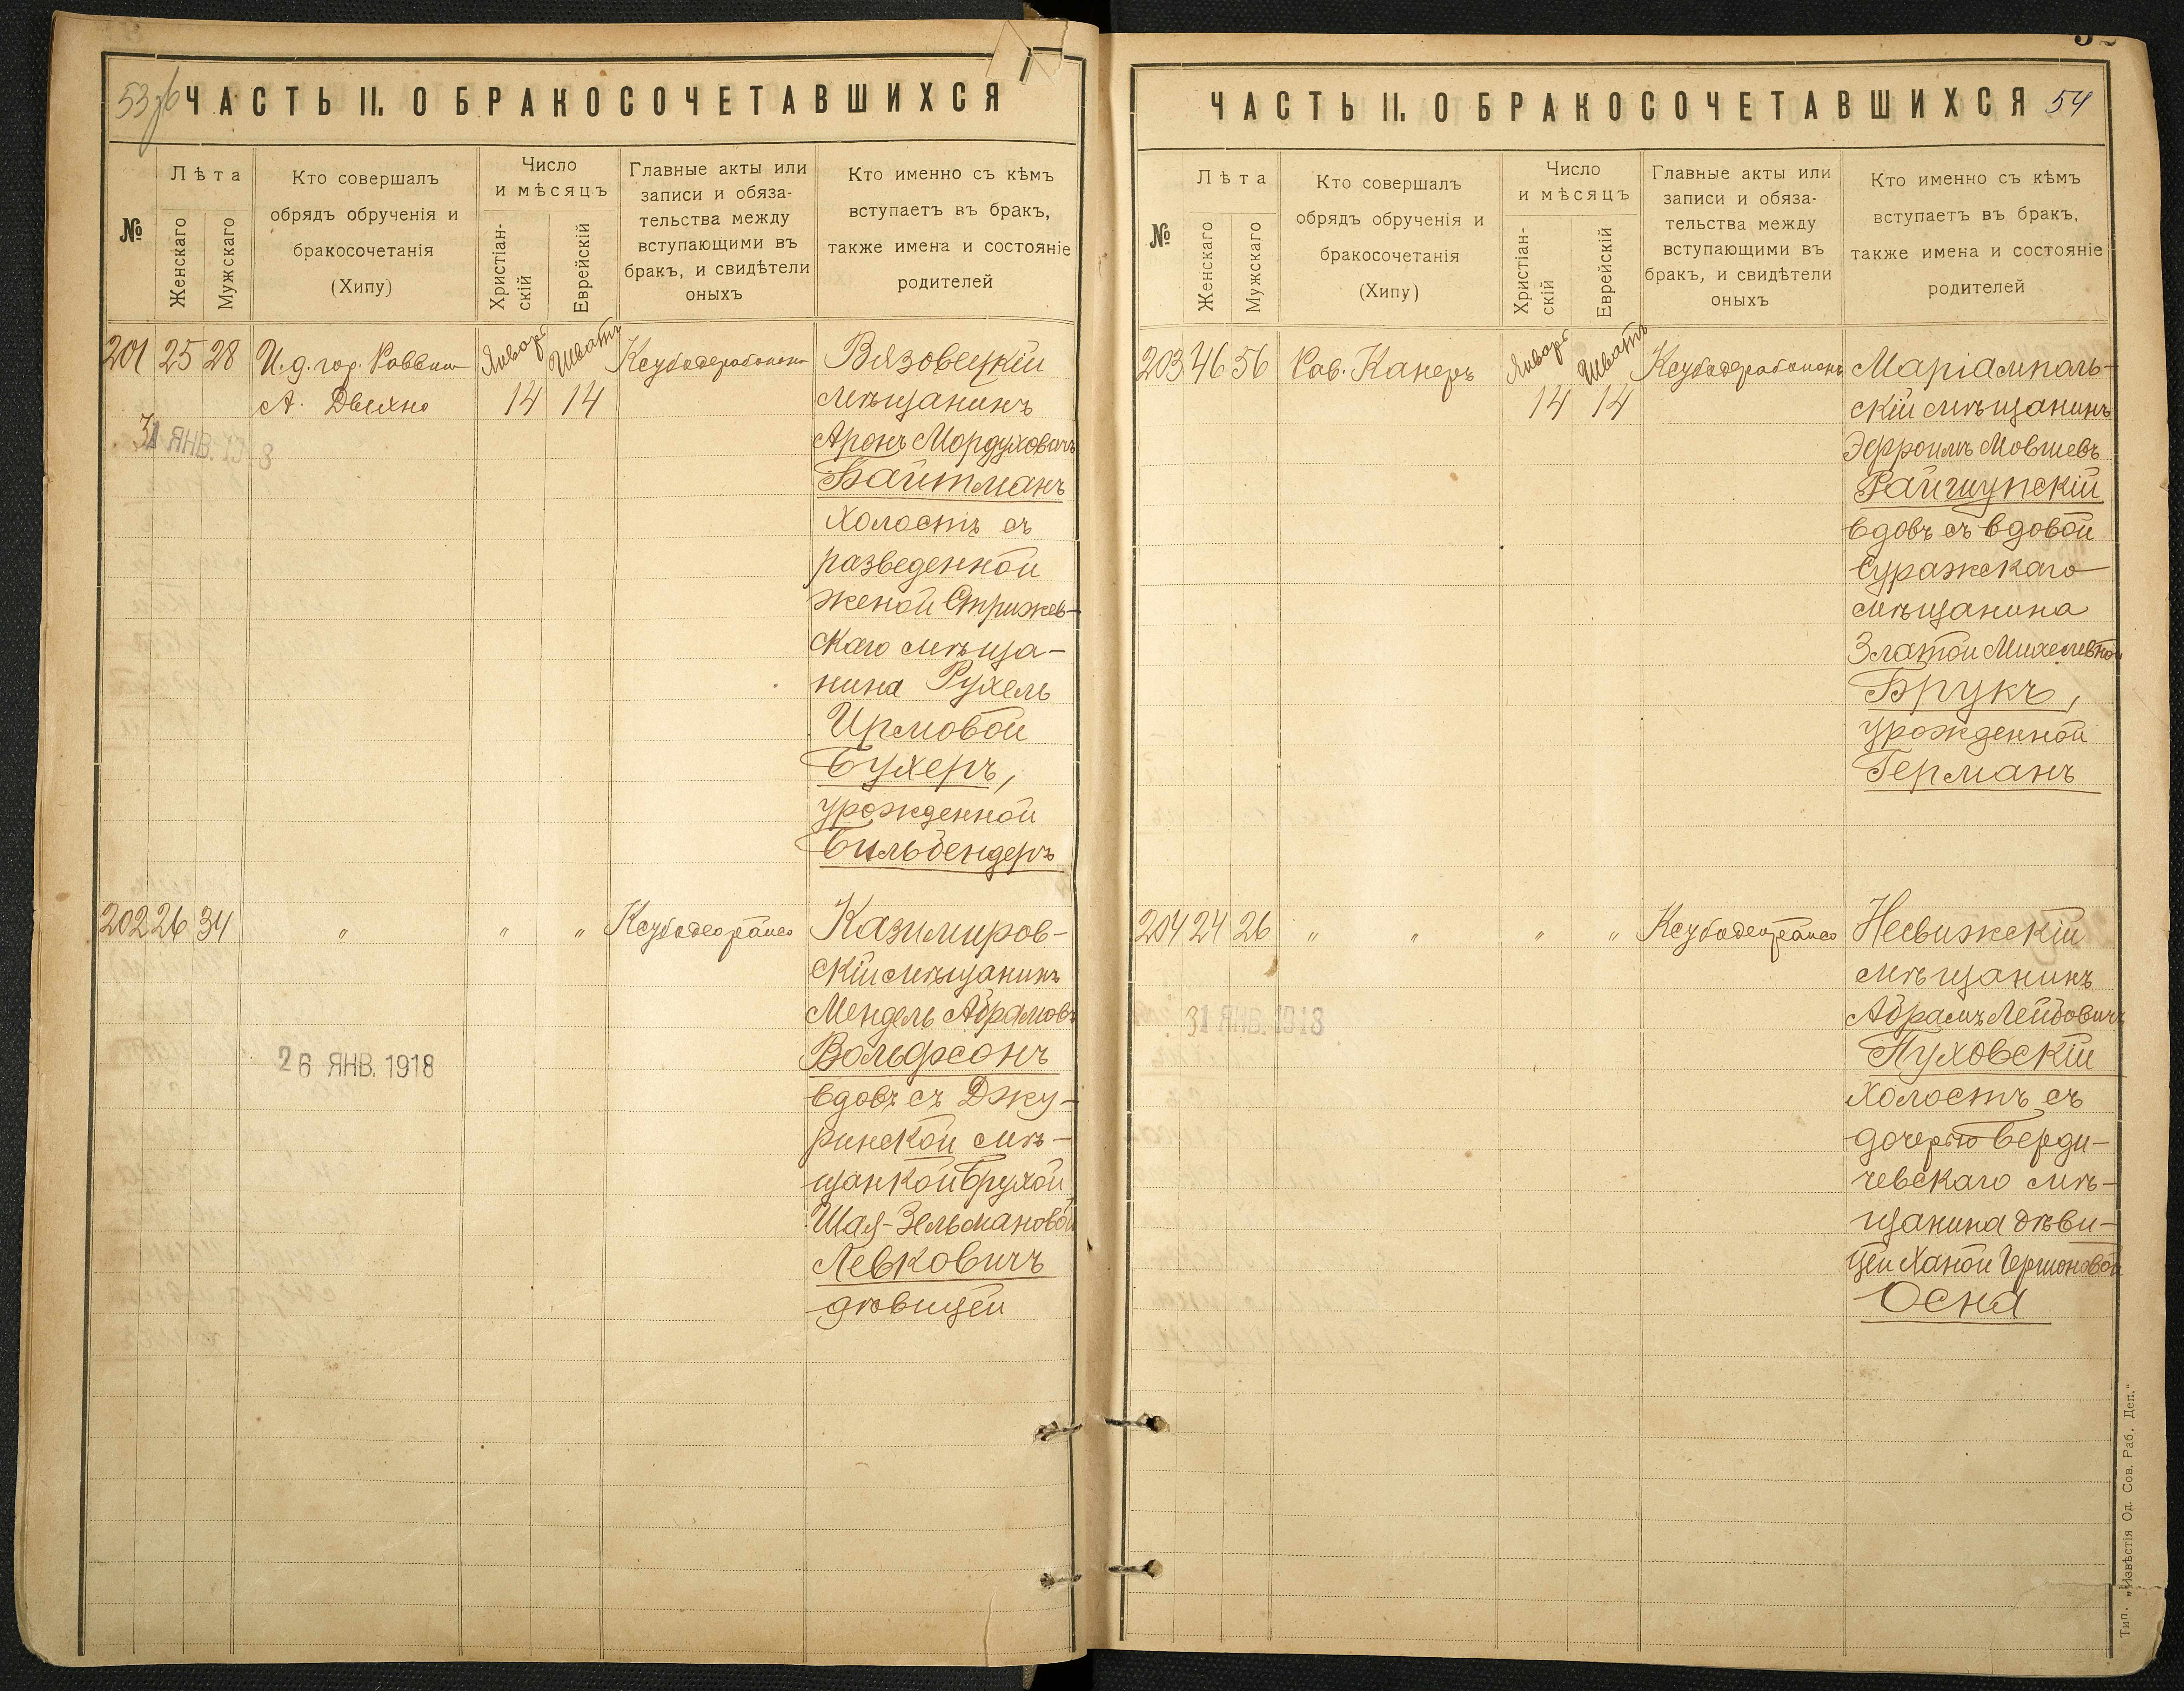 53об
ЧАСТЬ II. О БРАКОСОЧЕТАВШИХСЯ
№
Лѣта
Женскаго
Мужскаго
Кто совершалъ
обрядъ обрученія и
бракосочетанія
(Хипу)
Число
и мѣсяцъ
Христіан-
скій
Еврейскій
Главные акты или
записи и обяза-
тельства между
вступающими въ
бракъ, и свидѣтели
оныхъ
Кто именно съ кѣмъ
вступаетъ въ бракъ,
также имена и состояніе
родителей
201 25 28
И. д. гор. Раввина
А. Двихно
Январь
14
Шватъ
14
31 ЯНВ. 1918
Вязовецкій
мѣщанинъ
Аронъ Мордуховичъ
Байтманъ
холостъ съ
разведенной
женой Стрижев-
скаго мѣща-
нина Рухель
Ирмовой
Бухеръ,
урожденной
Бильбендеръ
202 26 34
" " "
26 ЯНВ. 1918
Казимиров-
скій мѣщанинъ
Мендель Абрамовъ
Вольфсонъ
вдовъ съ Джу-
ринской мѣ-
щанкой Брухой
Шая-Зельмановой
Левковичъ
дѣвицей
ЧАСТЬ II. О БРАКОСОЧЕТАВШИХСЯ
54
№
Лѣта
Женскаго
Мужскаго
Кто совершалъ
обрядъ обрученія и
бракосочетанія
(Хипу)
Число
и мѣсяцъ
Христіан-
скій
Еврейскій
Главные акты или
записи и обяза-
тельства между
вступающими въ
бракъ, и свидѣтели
оныхъ
Кто именно съ кѣмъ
вступаетъ въ бракъ,
также имена и состояніе
родителей
203 46 56
Рав. Канеръ
Январь
14
Шватъ
14
Маріамполь-
скій мѣщанинъ
Эфроимъ Мовшевъ
Райшупскій
вдовъ съ вдовой
Суражскаго
мѣщанина
Златой Михелевной
Брукъ,
урожденной
Германъ
204 24 26
" " " "
31 ЯНВ. 1918
Несвижскій
мѣщанинъ
Абрамъ Лейбовичъ
Пуховскій
холостъ съ
дочерью Берди-
чевскаго мѣ-
щанина дѣви-
цей Ханой Гершоновой
Осна
Тип. „Извѣстія Од. Сов. Раб. Деп."